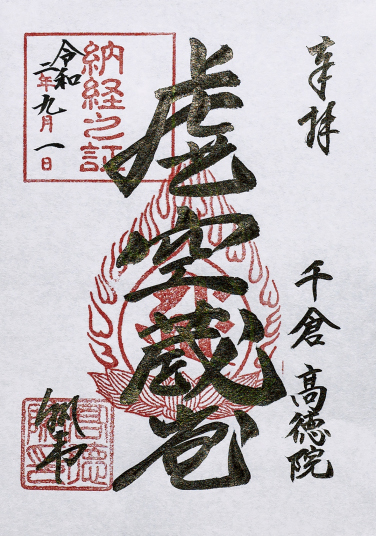 奉拝
千倉 高徳院
虚空蔵尊
納経之証
令和二年九月一日